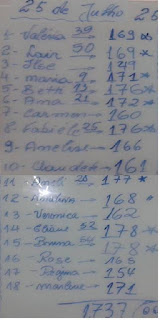 25 de Julho 26
1- Valéria 39 169*
2- Lair 90 169*
3- Ilse 149
4- maria 9 171*
5- Betti 13 176*
6- Ana 21 172*
7- Carmen 160
8- Fabiele 25 176*
9- Anelise 166
10- Claudete 161
11 - 28 177*
12 - 168*
13 - Veronica 162
14 - Eliane 52 178*
15 - 178*
16 - Rose 165
17 - Regina 154
18 - marlene 171
1737